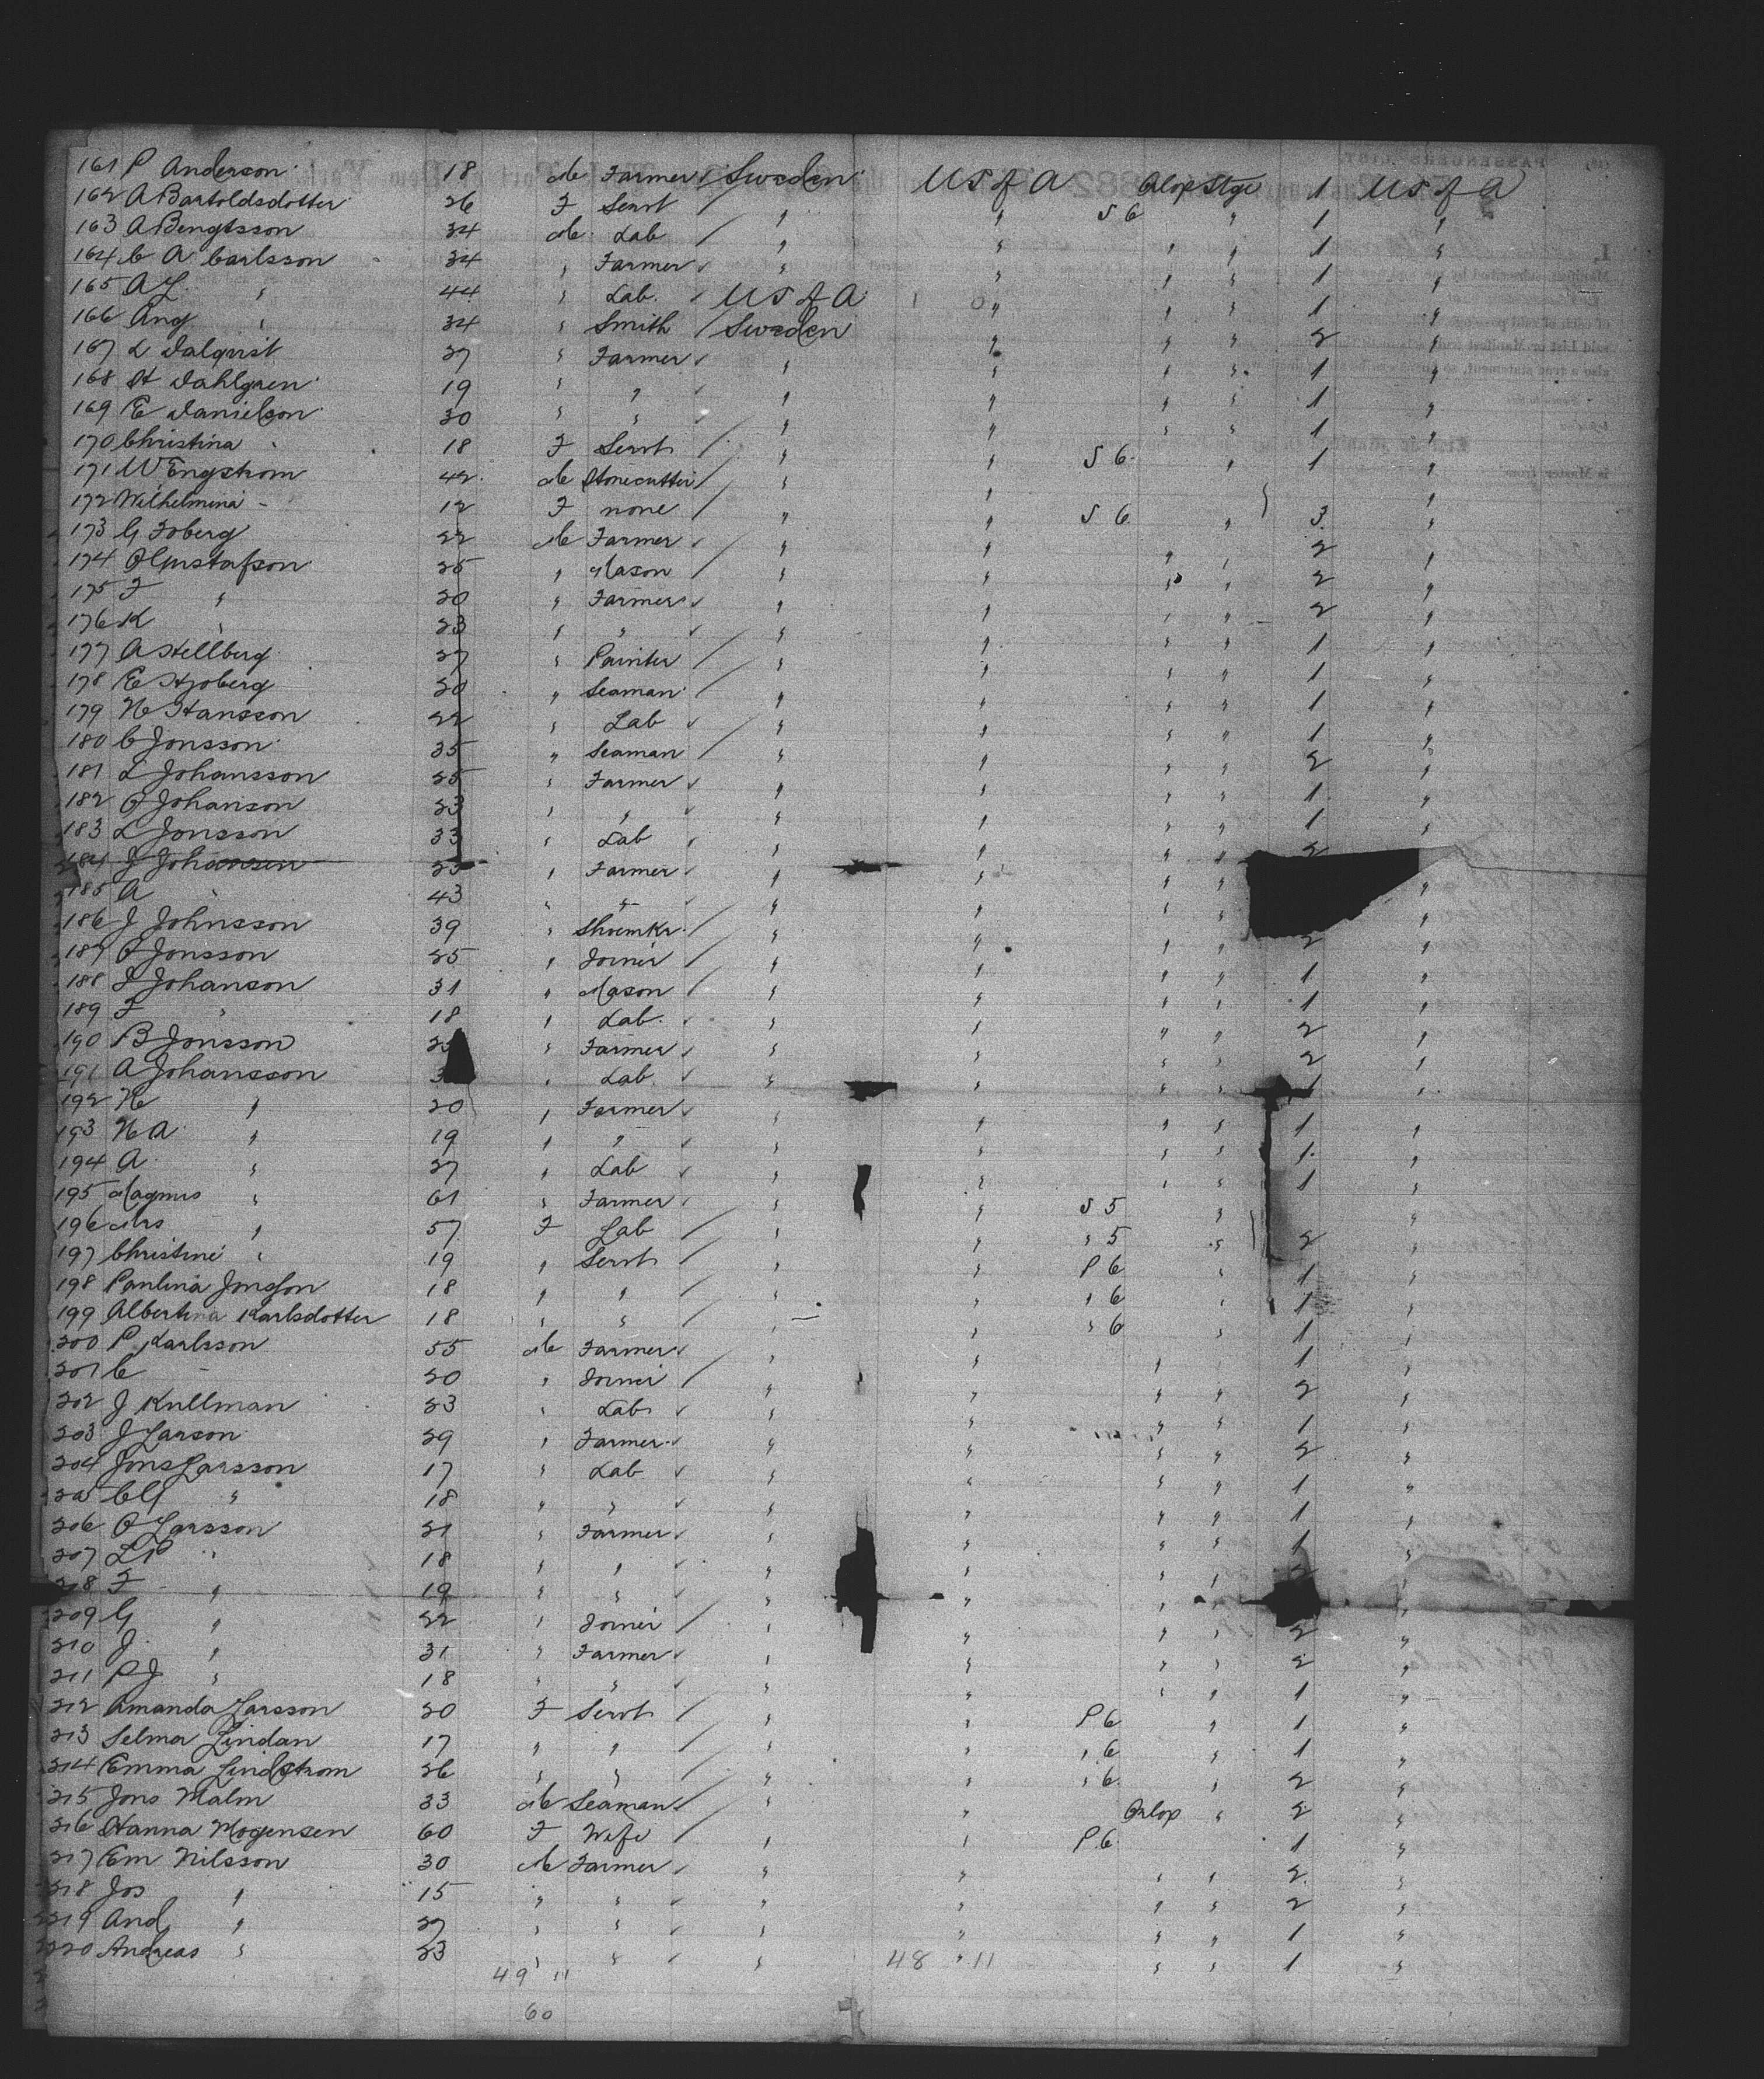 161 P Anderson 18 M Farmer / Sweden U S of A Orlop Stge 1 U S of A
162 A Bartoldsdotter 26 F Servt / " " S 6 " 1 "
163 A Bengtsson 34 M Lab / " " " " 1 "
164 C A Carlsson 34 " Farmer " " " " 1 "
165 A L " 44 " Lab. U S of A " " " 1 "
166 Aug " 34 " Smith / Sweden " " " 2 "
167 L Dalqvist 27 " Farmer " " " " 1 "
168 H Dahlgren 19 " " " " " " 1 "
169 E Danielson 30 " " " " " " 1 "
170 Christina " 18 F Servt / " " S 6 " 1 "
171 W Engstrom 42 M Stonecutter / " "
172 Wilhelmina " 12 F none / " " S 6 " 3 "
173 G Foberg 22 M Farmer / " " " " 2 "
174 O Gustafson 25 " Mason / " " " " 2 "
175 F " 20 " Farmer " " " " 2 "
176 K " 23 " " " " " " 1 "
177 A Hellberg 27 " Painter / " " " " 1 "
178 E Hjoberg 20 " Seaman / " " " " 1 "
179 N Hansson 22 " Lab " " " " 1 "
180 C Jonsson 35 " Seaman / " " " " 2 "
181 L Johansson 25 " Farmer " " " " 1 "
182 O Johanson 23 " " " " " " 1 "
183 L Jonsson 33 " Lab " " " " 2 "
184 J Johansen " Farmer " " " " "
185 A " 43 " " " " " " "
186 J Johnsson 39 " Shoemkr / " " " " 2 "
187 O Jonsson 25 " Joiner / " " " " 1 "
188 J Johanson 31 " Mason / " " " " 1 "
189 F " 18 " Lab. " " " " 2 "
190 B Jonsson " Farmer " " " " 2 "
191 A Johansson " Lab. " " " " 1 "
192 N " 20 " Farmer " " " " 1 "
193 N A " 19 " " " " " " 1 "
194 A " 27 " Lab " " " " 1 "
195 Magnus " 61 " Farmer " " S 5 " "
196 Mrs " 57 F Lab / " " " 5 " 2 "
197 Christine " 19 " Servt / " " P 6 " 1 "
198 Paulina Jonsson 18 " " / " " " 6 " 1 "
199 Albertina Karlsdotter 18 " " / " " " 6 " 1 "
200 P Karlsson 55 M Farmer " " " " 1 "
201 C " 20 " Joiner / " " " " 2 "
202 J Kullman 23 " Lab " " " " 1 "
203 J Larson 29 " Farmer " " " " 2 "
204 Jons Larsson 17 " Lab " " " " 1 "
205 C G " 18 " " " " " " 1 "
206 O Larsson 21 " Farmer " " " " 1 "
207 L P " 18 " " " " " " "
208 F " 19 " " " " " " "
209 G " 22 " Joiner / " " " " 2 "
210 J " 31 " Farmer " " " " 2 "
211 P J " 18 " " " " " " 1 "
212 Amanda Larsson 20 F Servt / " " P 6 " 1 "
213 Selma Lindan 17 " " / " " " 6 " 1 "
214 Emma Lindstrom 26 " " / " " " 6 " 2 "
215 Jons Malm 33 M Seaman / " " Orlop " 2 "
216 Hanna Mogensen 60 F Wife / " " P 6 1 "
217 Em Nilsson 30 M Farmer " " " " 2 "
218 Jos " 15 " " " " " " 2 "
219 And " 27 " " " " " " 1 "
220 Andreas " 23 " " " " " " 1 "
49 11 48 11
60